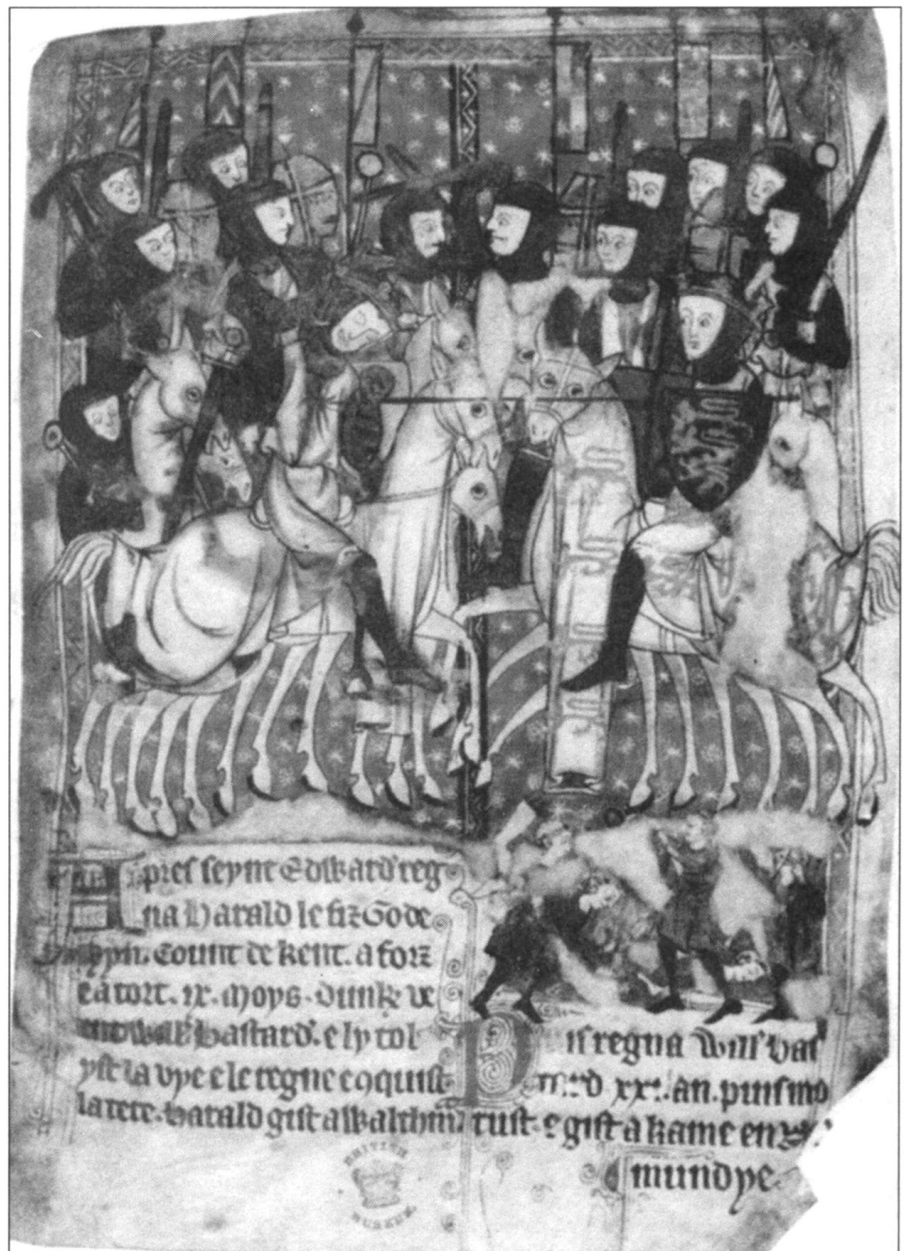 pres seynt Edward reg
na Harald le fiz Gode
wyn. Count de kent. a forz
e a tort. ix. moys. dunk ve
Bastard. e ly tol
yst la vye e le regne coquist
la tere. Harald gist a Walthm
Puis regna Will' bas
tard xx. an. puis mo
rust. e gist a kame en
mundye
BRITISH
MUSEUM